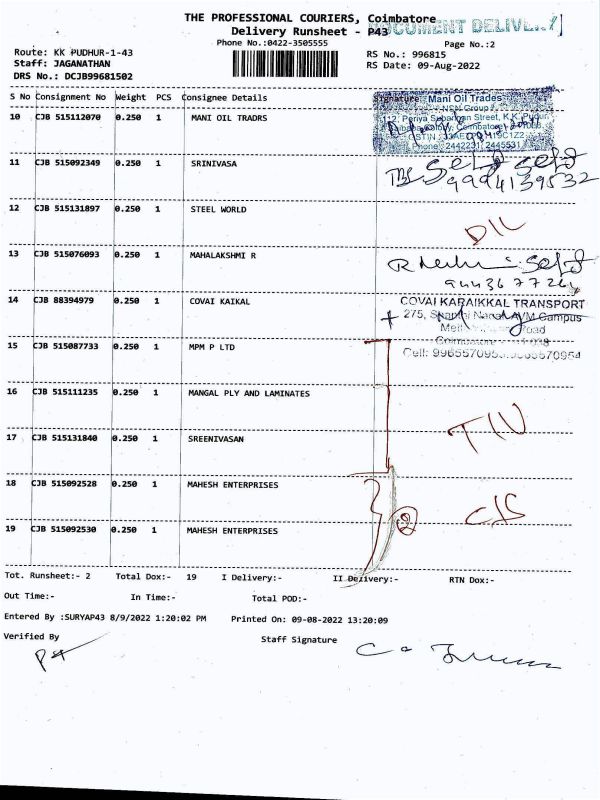 THE PROFESSIONAL COURIERS, Coimbatore
DOCUMENT DELIVERY
Delivery Runsheet - P43
Phone No.:0422-3505555
Page No.:2
Route: KK PUDHUR-1-43
RS No.: 996815
Staff: JAGANATHAN
RS Date: 09-Aug-2022
DRS No.: DCJB99681502
S No Consignment No Weight PCS Consignee Details Signature
Mani Oil Trades
10 CJB 515112070 0.250 1 MANI OIL TRADRS
11 CJB 515092349 0.250 1 SRINIVASA
Self Self
9994139532
12 CJB 515131897 0.250 1 STEEL WORLD
D/L
13 CJB 515076093 0.250 1 MAHALAKSHMI R
Self
14 CJB 88394979 0.250 1 COVAI KAIKAL
COVAI KARAIKKAL TRANSPORT
275, AVM Campus
Road
Cell:
15 CJB 515087733 0.250 1 MPM P LTD
16 CJB 515111235 0.250 1 MANGAL PLY AND LAMINATES
17 CJB 515131840 0.250 1 SREENIVASAN
18 CJB 515092528 0.250 1 MAHESH ENTERPRISES
2
19 CJB 515092530 0.250 1 MAHESH ENTERPRISES
Tot. Runsheet:- 2 Total Dox:- 19 I Delivery:- II Delivery:- RTN Dox:-
Out Time:- In Time:- Total POD:-
Entered By :SURYAP43 8/9/2022 1:20:02 PM Printed On: 09-08-2022 13:20:09
Verified By Staff Signature